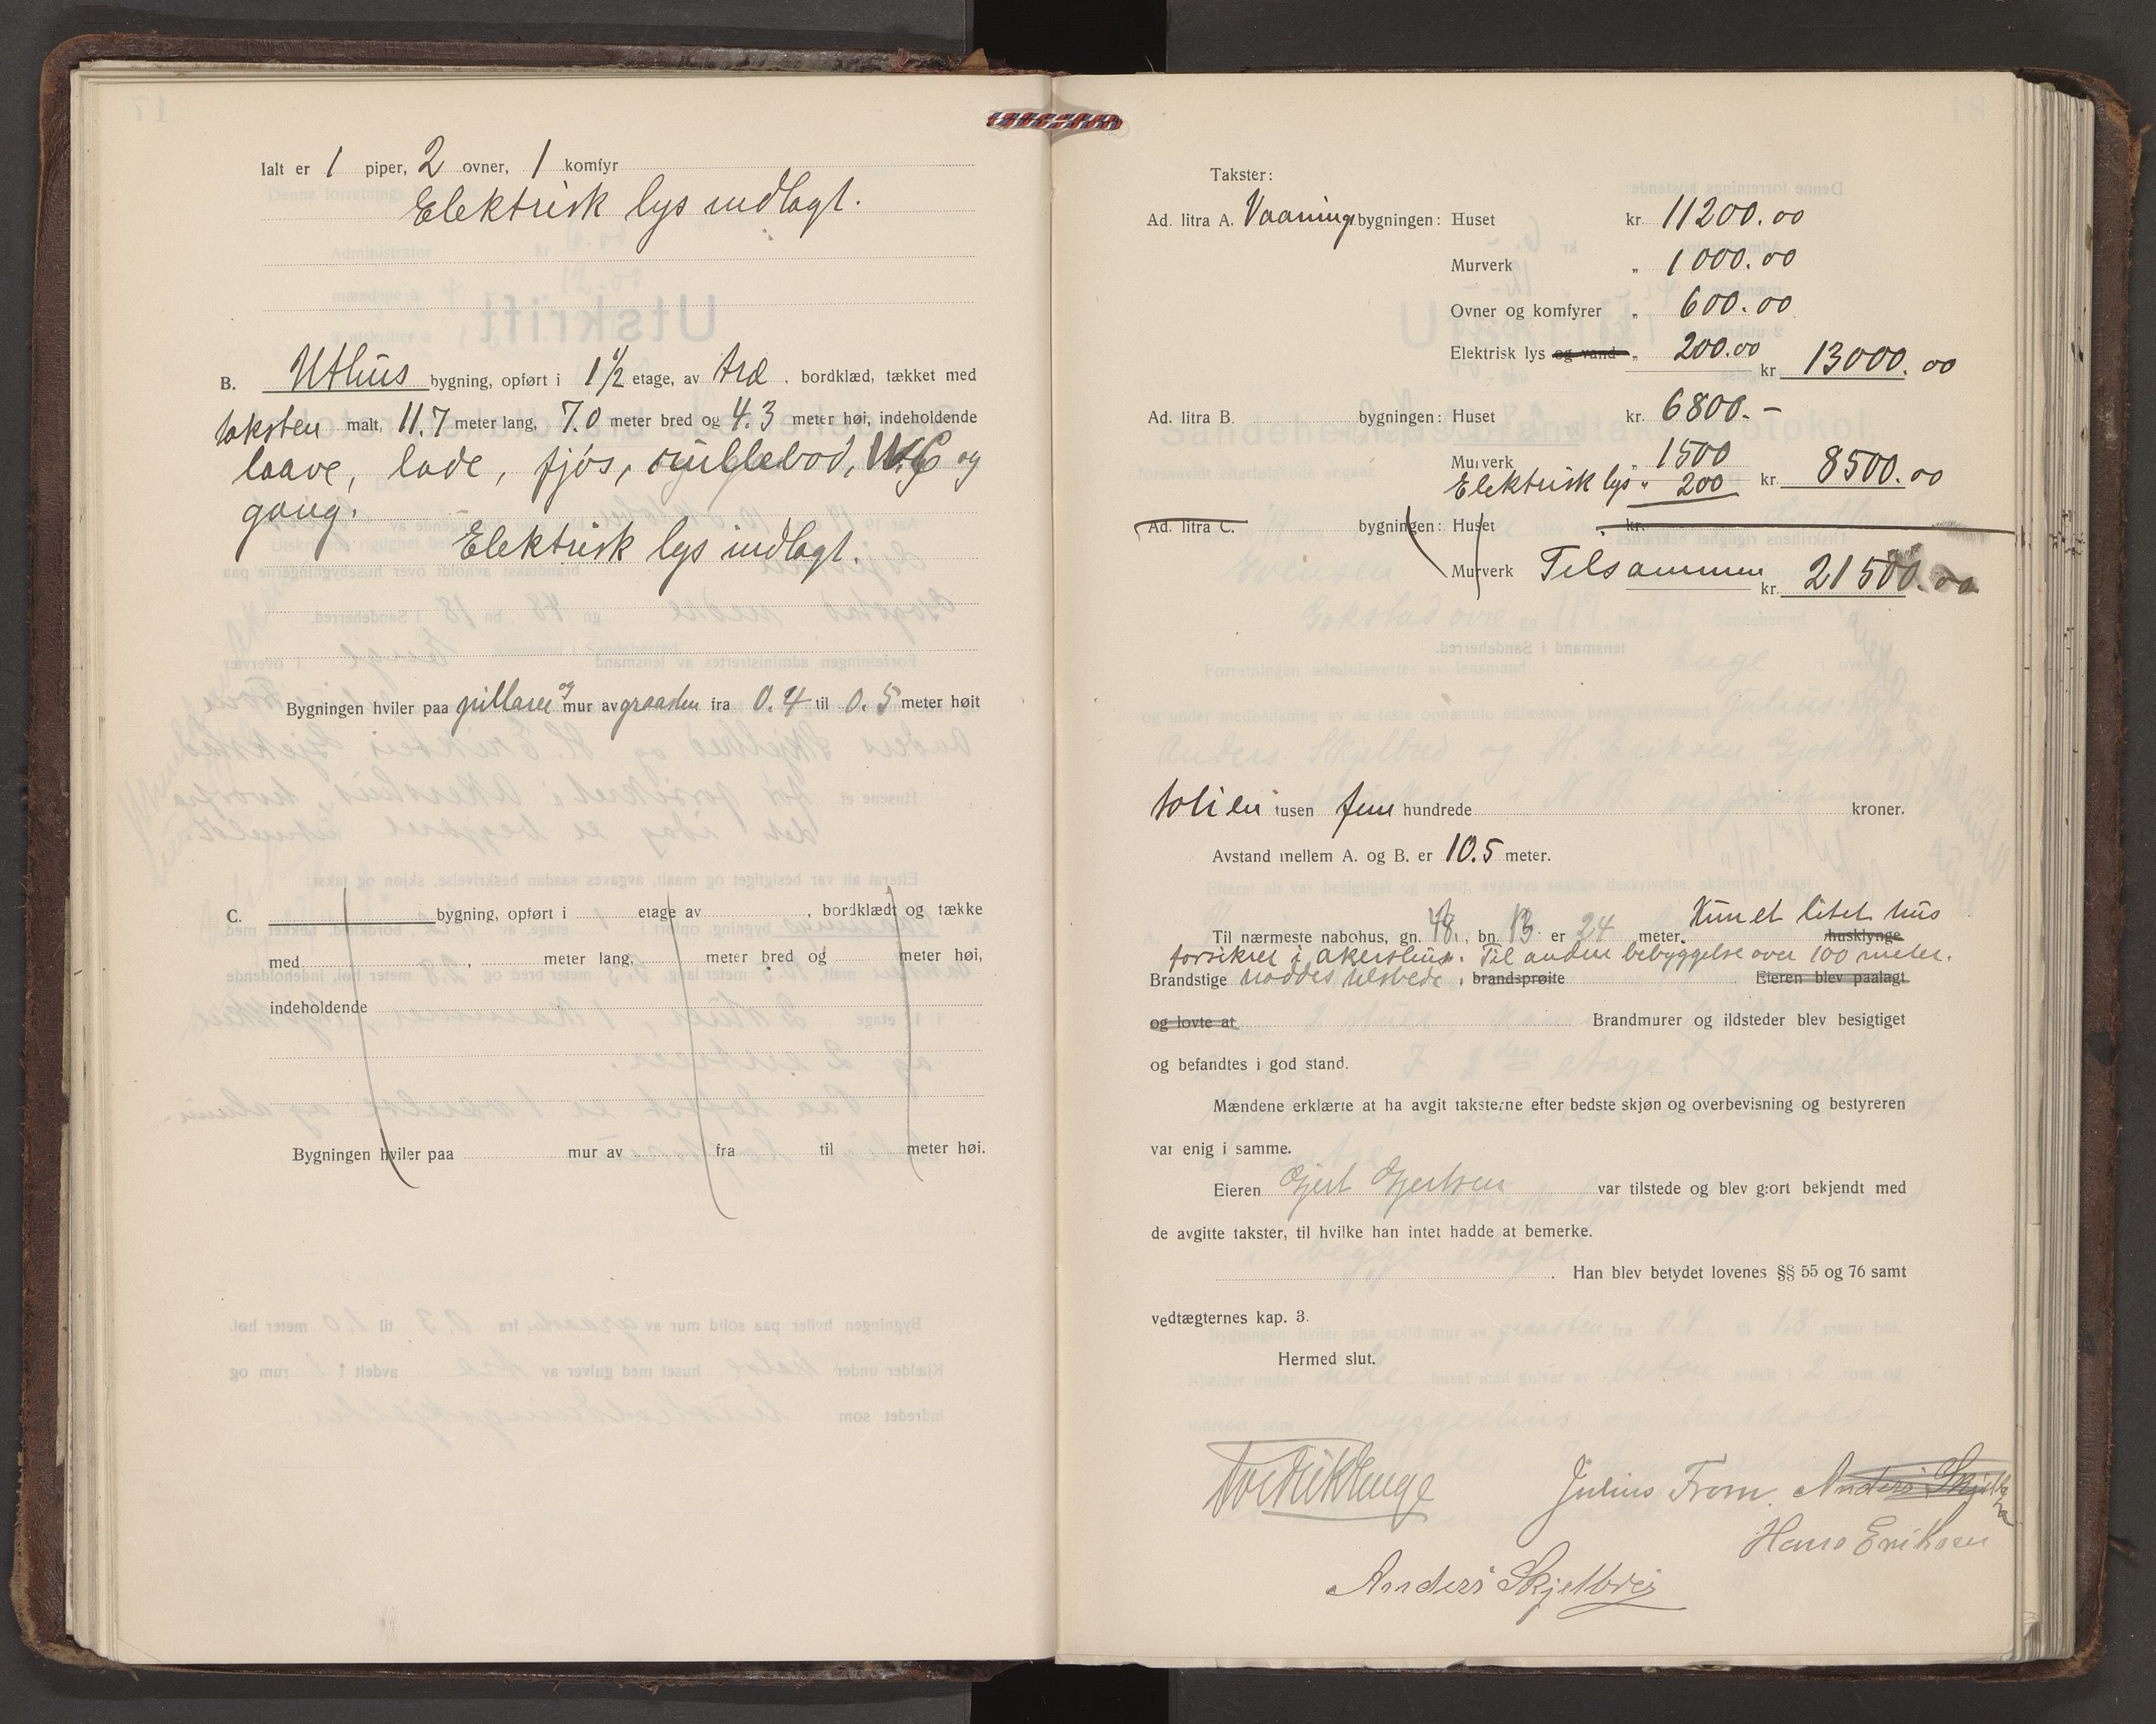 Ialt er 1 piper, 2 ovner, 1 komfyr
Elektrisk lys indlagt.
B. Uthus bygning, opført i 1 1/2 etage, av træ, bordklæd, tækket med
taksten malt, 11.7 meter lang, 7.0 meter bred og 4.3 meter høi, indeholdende
laave, lade, fjøs, W.C og
gang.
Elektrisk lys indlagt.
Bygningen hviler paa pillarer og mur av graasten fra 0.4 til 0.5 meter høit
C. bygning, opført i etage av , bordklædt og tække
med , meter lang, meter bred og meter høi,
indeholdende
Bygningen hviler paa mur av fra til meter høi.
Takster:
Ad. litra A. Vaaningsbygningen: Huset kr. 11200.00
Murverk „ 1000.00
Ovner og komfyrer „ 600.00
Elektrisk lys og vand „ 200.00 kr. 13000.00
Ad. litra B. bygningen: Huset kr. 6800.-
Murverk „ 1500
Elektrisk lys „ 200 kr. 8500.00
Ad. litra C. bygningen: Huset kr.
Murverk Tilsammen kr. 21500.00
tusen fem hundrede kroner.
Avstand mellem A. og B. er 10.5 meter.
Til nærmeste nabohus, gn. 48, bn. 13 er 24 meter. Kun et litet hus
husklynge
forsikret i Akershus. Til anden bebyggelse over 100 meter.
Brandstige loddes tilstede, brandsprøite Eieren blev paalagt
og lovte at Brandmurer og ildsteder blev besigtiget
og befandtes i god stand.
Mændene erklærte at ha avgit taksterne efter bedste skjøn og overbevisning og bestyreren
var enig i samme.
Eieren Gjert Gjertsen var tilstede og blev gjort bekjendt med
de avgitte takster, til hvilke han intet hadde at bemerke.
Han blev betydet lovenes §§ 55 og 76 samt
vedtægternes kap. 3.
Hermed slut.
Julius From. Anders Skjelbre
Hans Eriksen
Anders Skjelbrei